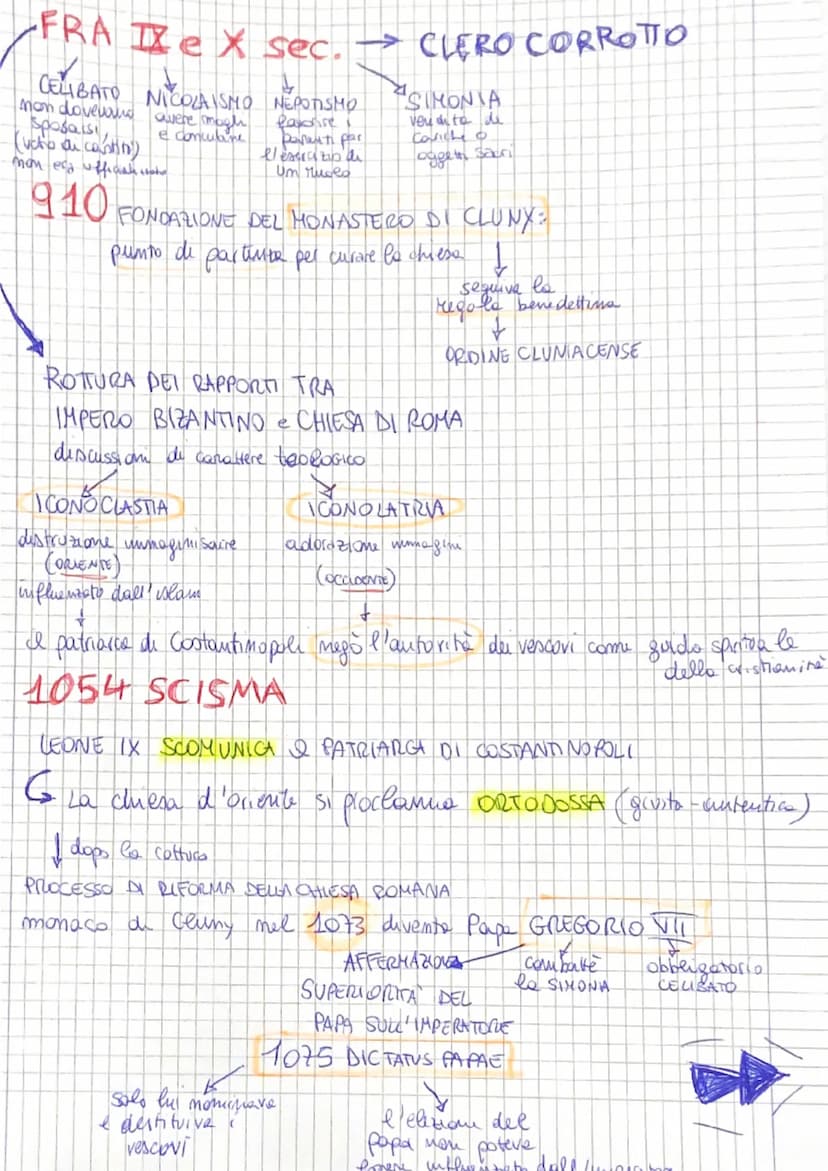 FRA IX e X sec. → CLERO CORROTTO
CELIBATO
non dovevano
sposarsi,
(voto di castità)
non era ufficializzato
NICOLAISMO
avere mogli
e concubine
NEPOTISMO
favorire i
parenti per
l'esercizio di
un ruolo
SIMONIA
vendita di
cariche o
oggetti sacri
910 FONDAZIONE DEL MONASTERO DI CLUNY:
punto di partenza per curare la chiesa
seguiva la
regola benedettina
ORDINE CLUNIACENSE
ROTTURA DEI RAPPORTI TRA
IMPERO BIZANTINO e CHIESA DI ROMA
discussioni di carattere teologico
ICONOCLASTIA
distruzione immagini sacre
(ORIENTE)
influenzato dall'islam
ICONOLATRIA
adorazione immagini
(OCCIDENTE)
il patriarca di Costantinopoli negò l'autorità dei vescovi come guida spirituale
della cristianità
1054 SCISMA
LEONE IX SCOMUNICA il PATRIARCA DI COSTANTINOPOLI
La chiesa d'oriente si proclama ORTODOSSA (giusta - autentica)
dopo la rottura
PROCESSO DI RIFORMA DELLA CHIESA ROMANA
monaco di Cluny nel 1073 diventa Papa GREGORIO VII
AFFERMAZIONE
SUPERIORITÀ DEL
PAPA SULL'IMPERATORE
combatté
la SIMONIA
obbligatorio
CELIBATO
1075 DICTATUS PAPAE
solo lui nominava
e destituiva i
vescovi
l'elezione del
papa non poteva